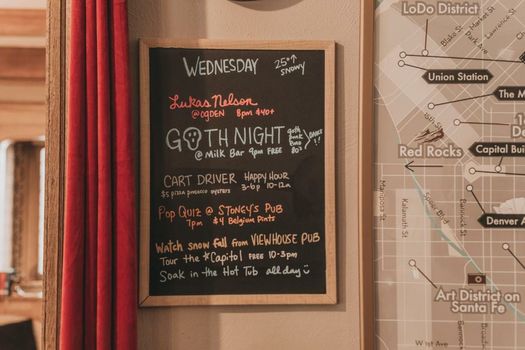 WEDNESDAY 25°↑ SNOWY
Lukas Nelson
@OGDEN 8pm $40+
GOTH NIGHT
@ Milk Bar 9pm FREE
CART DRIVER HAPPY HOUR
$5 pizza prosecco oysters 3-6p 10-12a
Pop Quiz @ STONEY'S PUB
7pm $4 Belgium Pints
Watch snow fall from VIEWHOUSE PUB
Tour the *Capitol FREE 10-3pm
Soak in the Hot Tub all day
LoDo District
Blake St
Market St
Lawrence St
Park Ave
Union Station
The M
Red Rocks
Capitol Bui
Mariposa St
Kalamath St
Speer Blvd
Bannock St
Denver A
Art District on
Santa Fe
W 1st Ave
Broadway